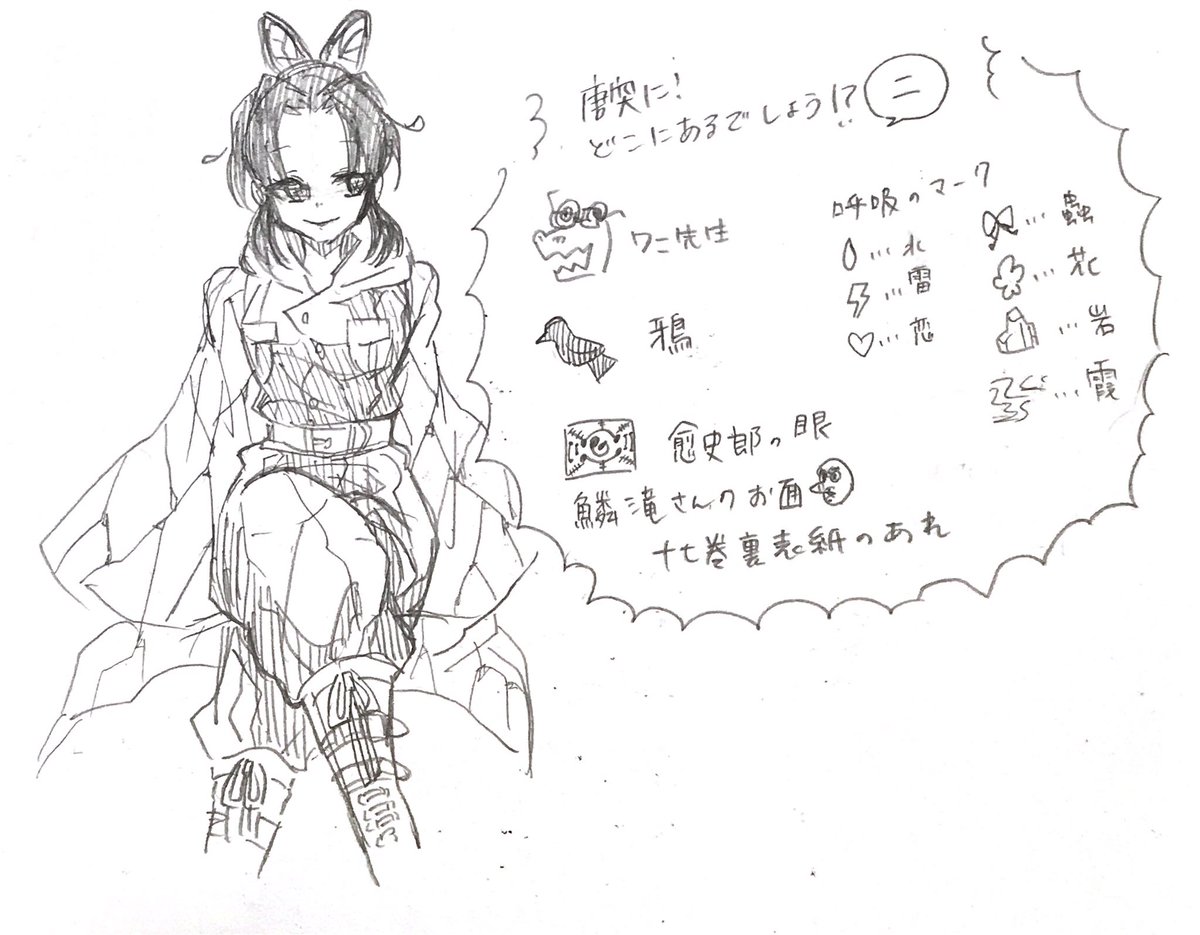 唐突に!
どこにあるでしょう!?
二
ワニ先生
鴉
愈史郎の眼
鱗滝さんのお面
十七巻裏表紙のあれ
呼吸のマーク
…水
…雷
…恋
…蟲
…花
…岩
…霞